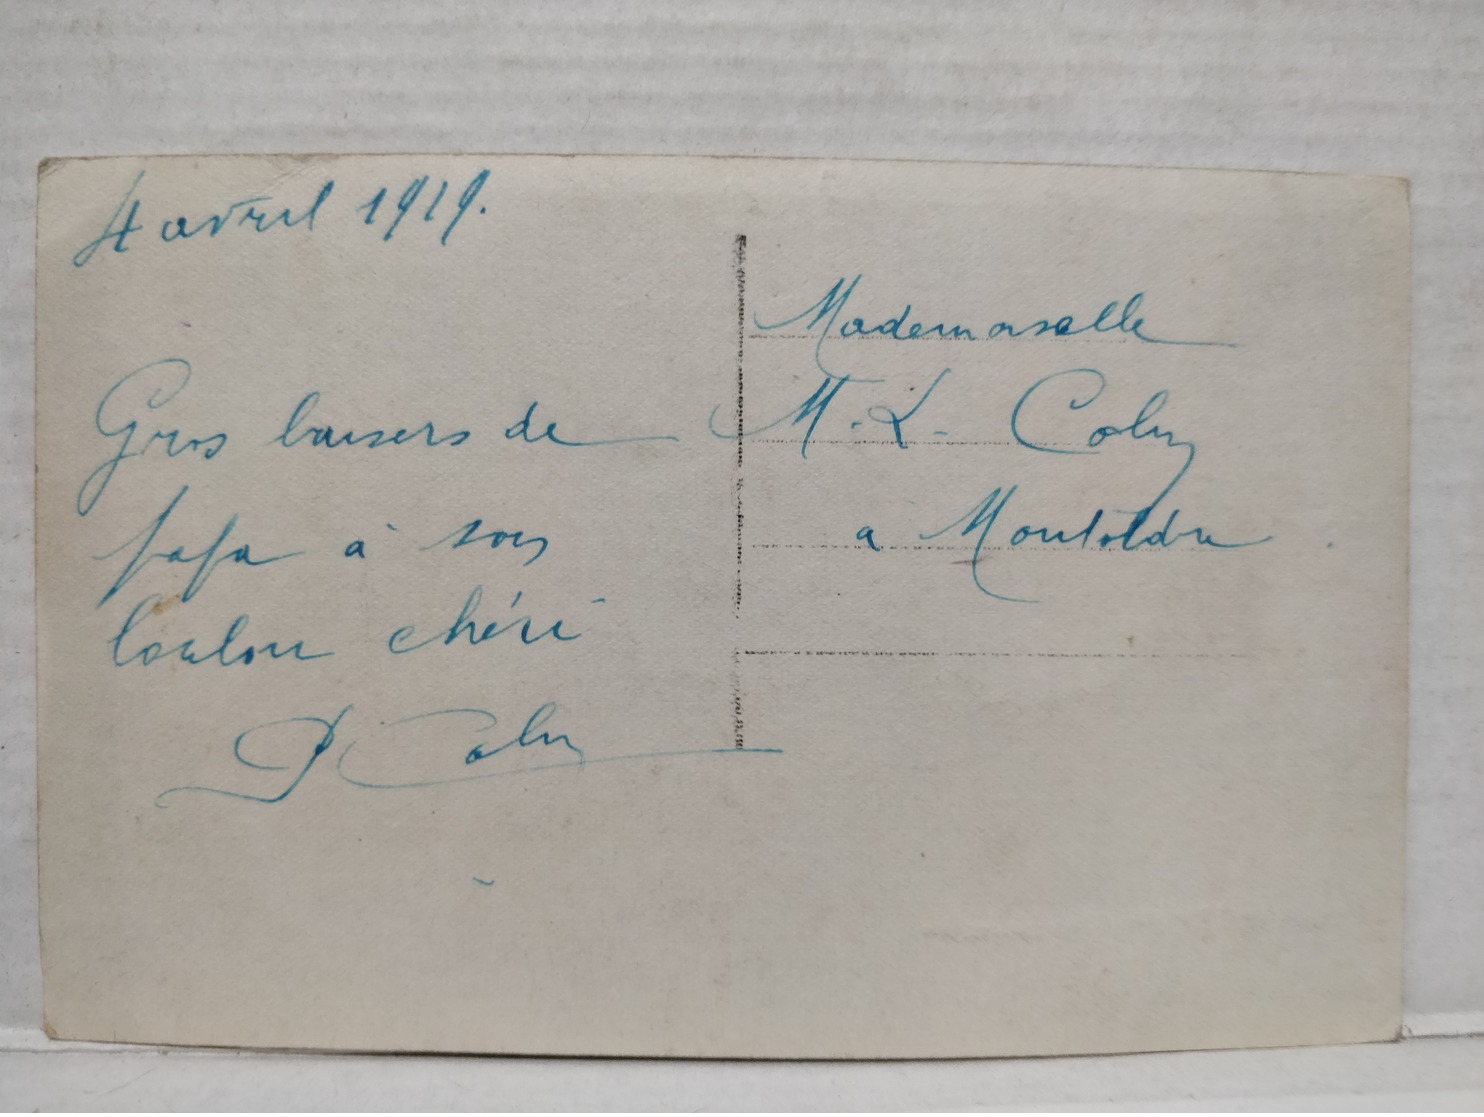 4 avril 1919.
Gros baisers de
papa à son
loulou chéri
Mademoiselle
M. L. Colin
à Montoldre.